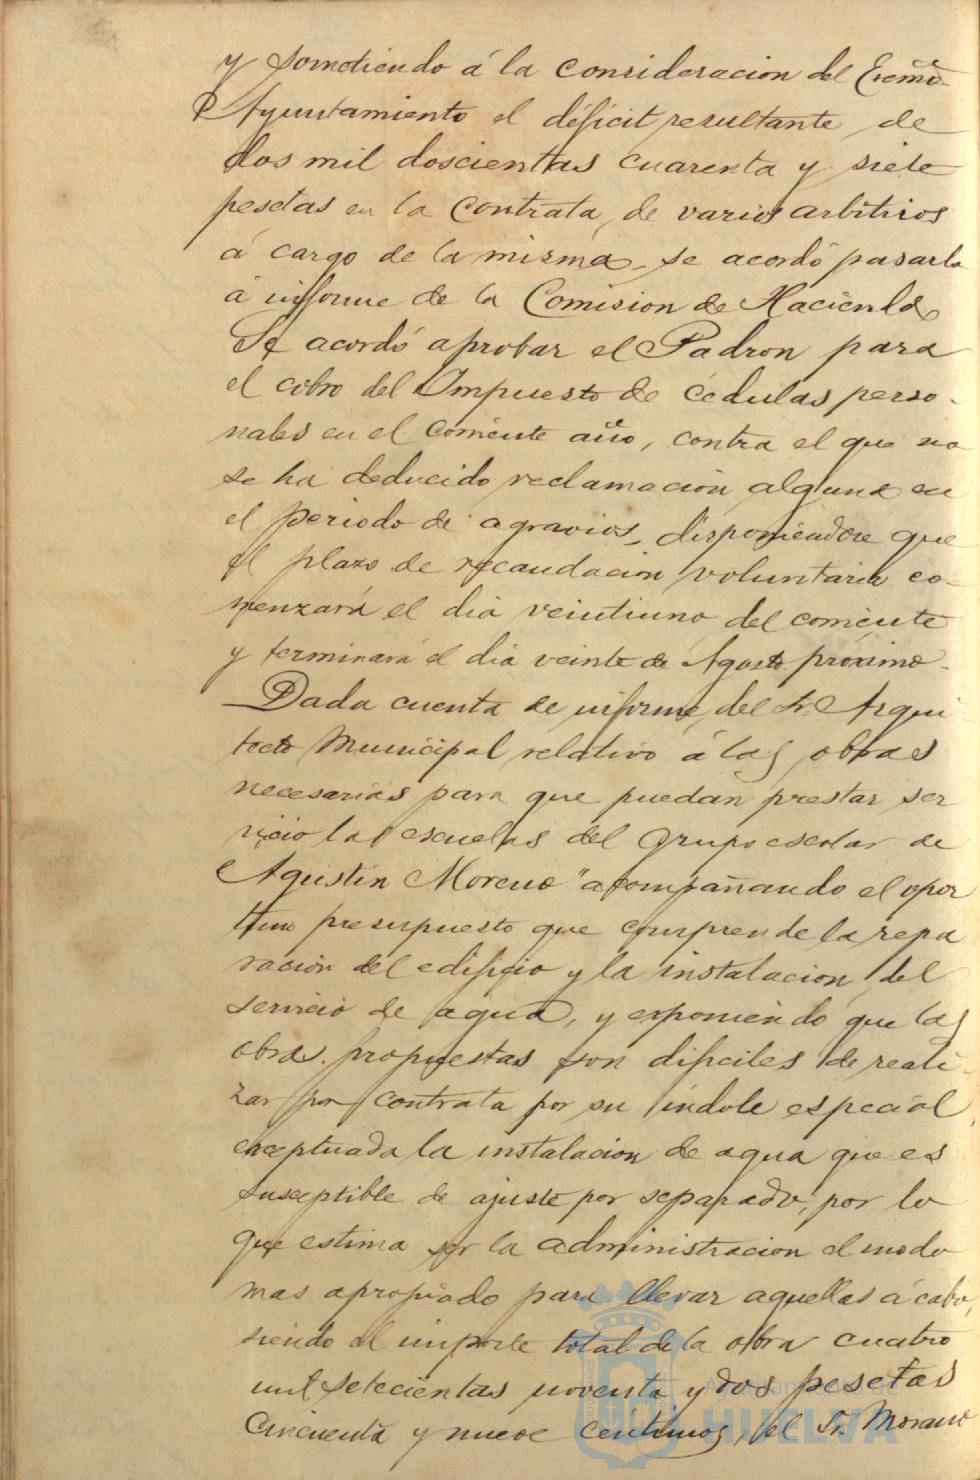 y sometiendo á la consideracion del Excmo
Ayuntamiento el déficit resultante de
dos mil doscientas cuarenta y siete
pesetas en la contrata de varios arbitrios
á cargo de la misma, se acordó pasarla
á informe de la Comision de Hacienda
Se acordó aprobar el Padron para
el cobro del Impuesto de cédulas perso-
nales en el corriente año, contra el que no
se ha deducido reclamación alguna en
el periodo de agravios, disponiendose que
el plazo de recaudacion voluntaria co-
menzará el dia veintiuno del corriente
y terminará el dia veinte de Agosto próximo.
Dada cuenta de informe del Sr. Arqui-
tecto Municipal relativo á las obras
necesarias para que puedan prestar ser
vicio las escuelas del Grupo escolar de
"Agustín Moreno" acompañando el opor
tuno presupuesto que comprende la repa
ración del edificio y la instalacion del
servicio de agua, y exponiendo que las
obras propuestas son dificiles de reali-
zar por contrata por su índole especial,
exceptuada la instalacion de agua que es
susceptible de ajuste por separado, por lo
que estima ser la administracion el modo
mas apropiado para llevar aquellas á cabo,
siendo el importe total de la obra cuatro
mil setecientas noventa y dos pesetas
cincuenta y nueve centimos, el Sr. Morano
Ayuntamiento de
HUELVA